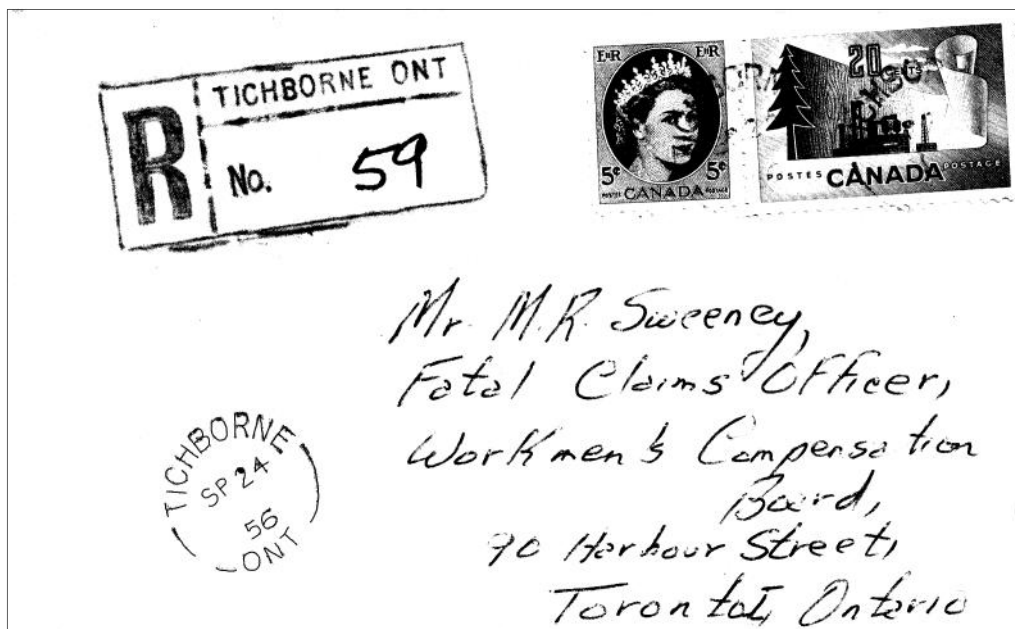 R
TICHBORNE ONT
No. 59
EIIR EIIR
5¢ 5¢
POSTES CANADA POSTAGE
20
POSTES CANADA POSTAGE
Mr. M.R. Sweeney,
Fatal Claims Officer,
Workmen's Compensation
Board,
90 Harbour Street,
Toronto 1, Ontario
TICHBORNE
SP 24
56
ONT